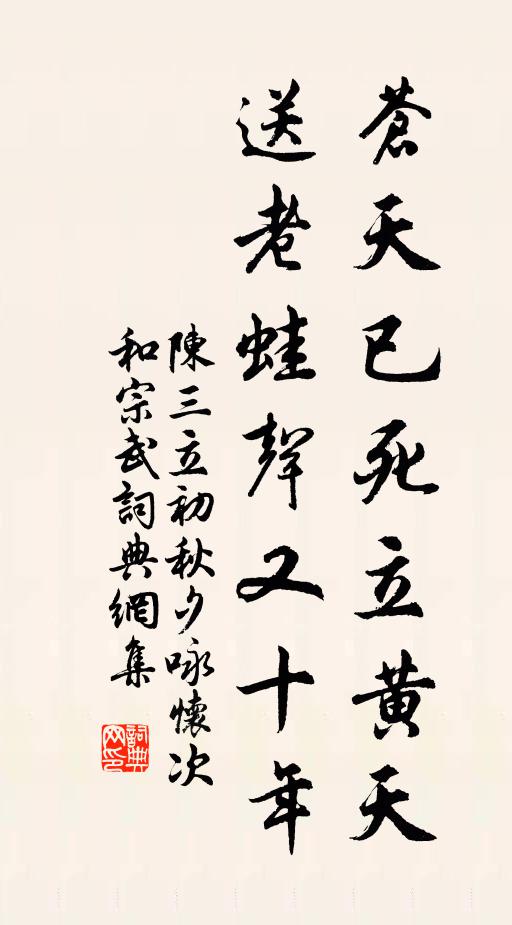 蒼天已死立黃天
送老蛙聲又十年
陳三立初秋夕咏懷次
和宗武詞典網集
詞典
网印